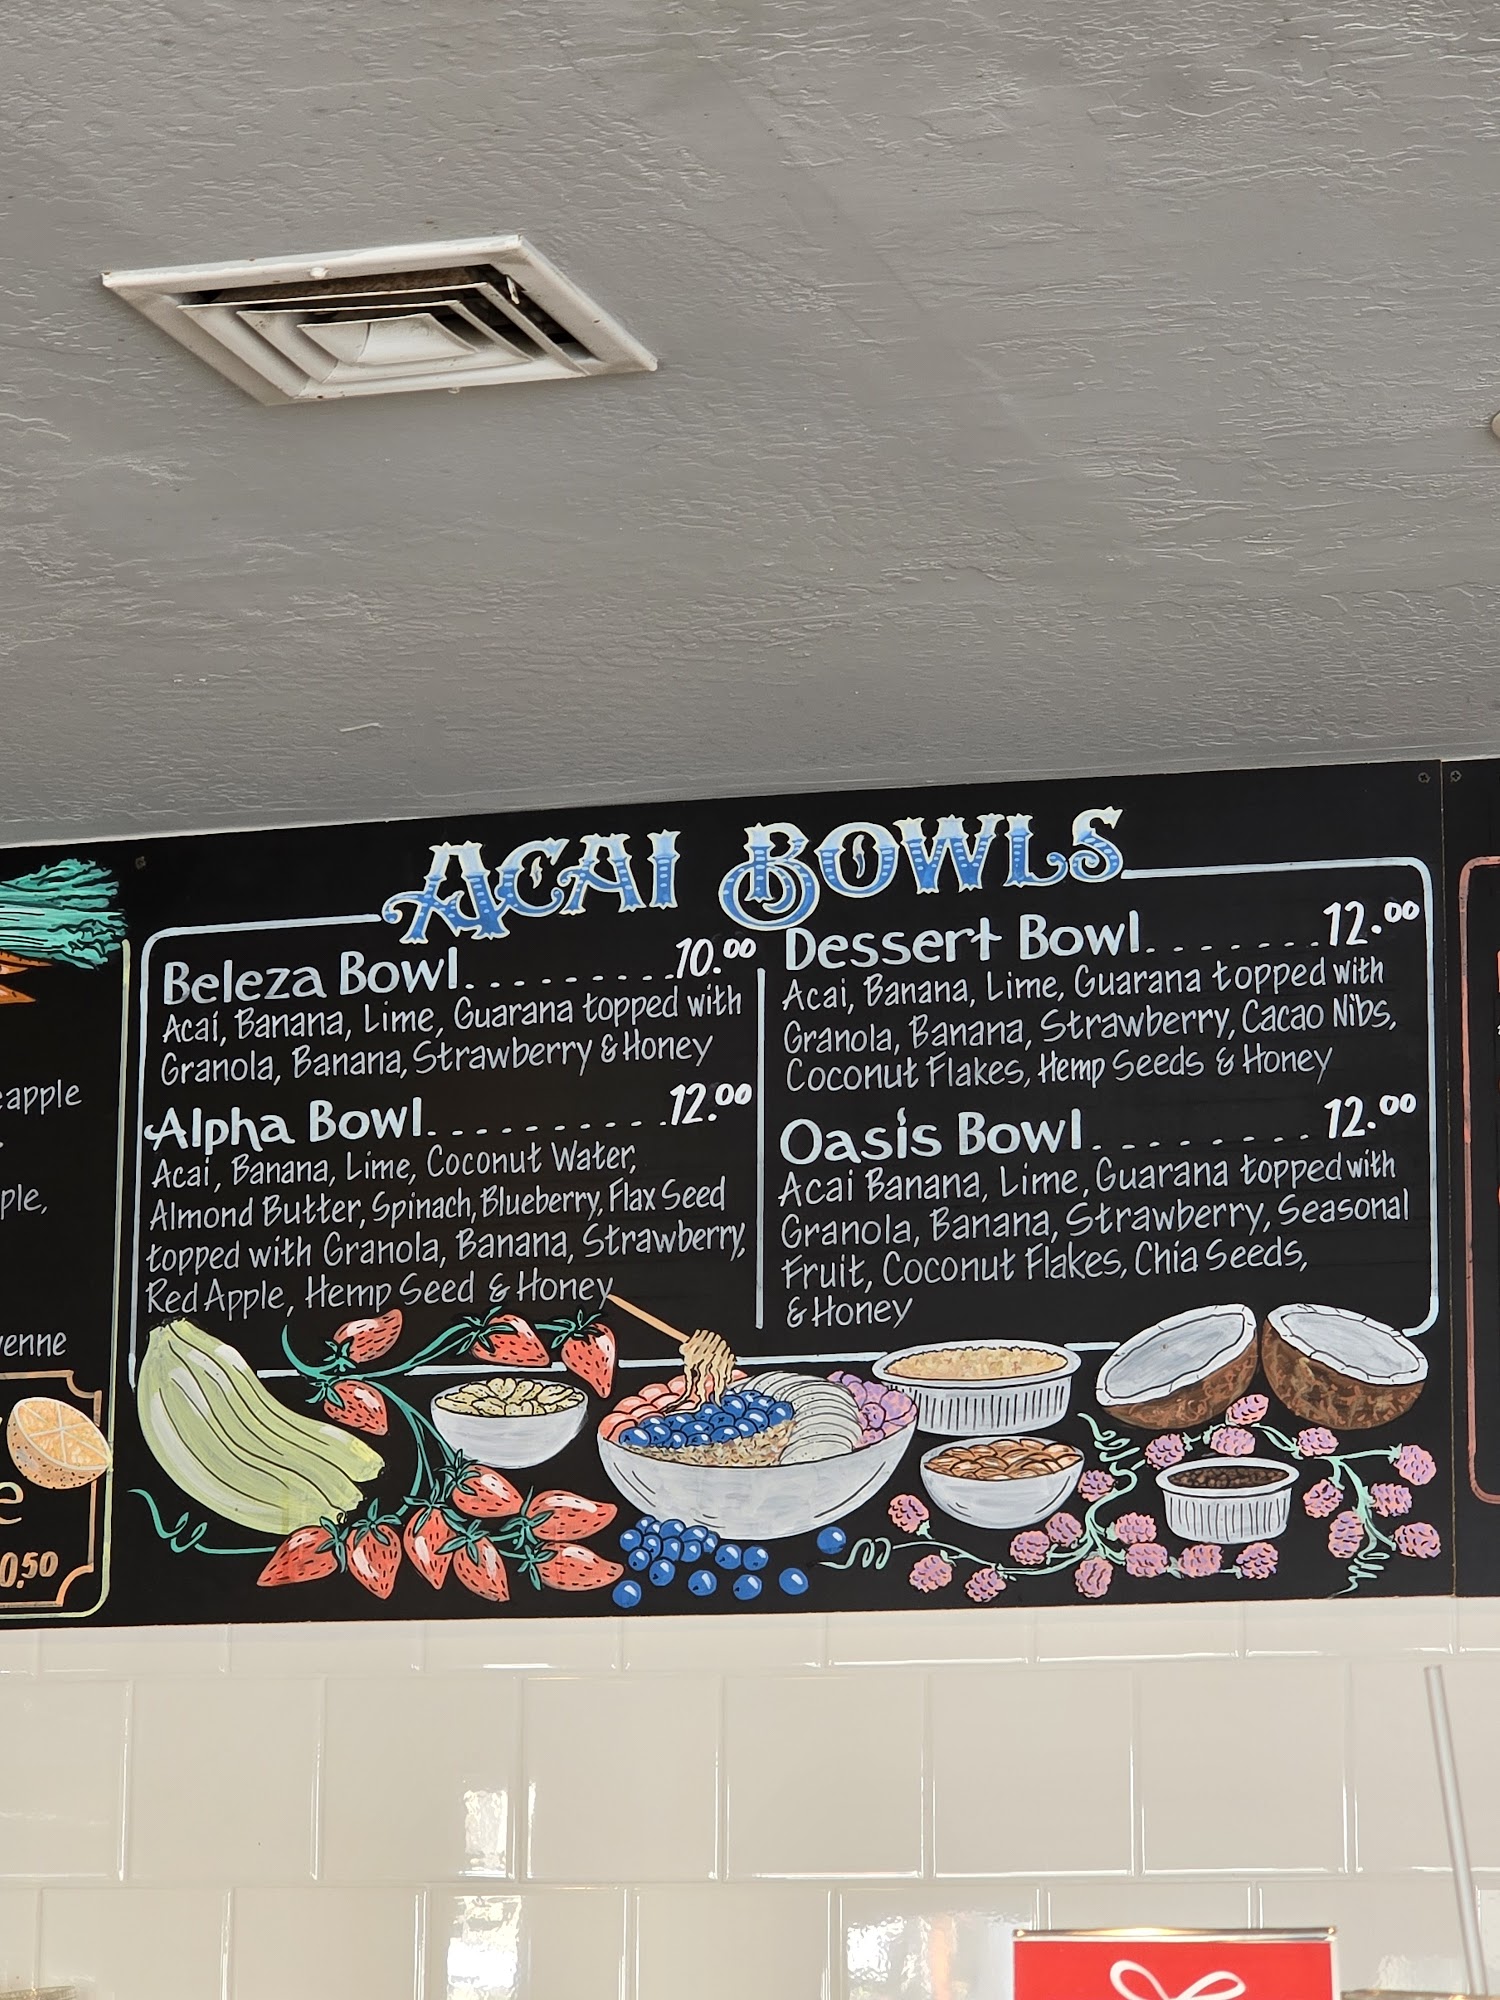 ACAI BOWLS
Beleza Bowl.........10.00
Acai, Banana, Lime, Guarana topped with
Granola, Banana, Strawberry & Honey
Alpha Bowl..........12.00
Acai, Banana, Lime, Coconut Water,
Almond Butter, Spinach, Blueberry, Flax Seed
topped with Granola, Banana, Strawberry,
Red Apple, Hemp Seed & Honey
Dessert Bowl.......12.00
Acai, Banana, Lime, Guarana topped with
Granola, Banana, Strawberry, Cacao Nibs,
Coconut Flakes, Hemp Seeds & Honey
Oasis Bowl........12.00
Acai Banana, Lime, Guarana topped with
Granola, Banana, Strawberry, Seasonal
Fruit, Coconut Flakes, Chia Seeds,
& Honey